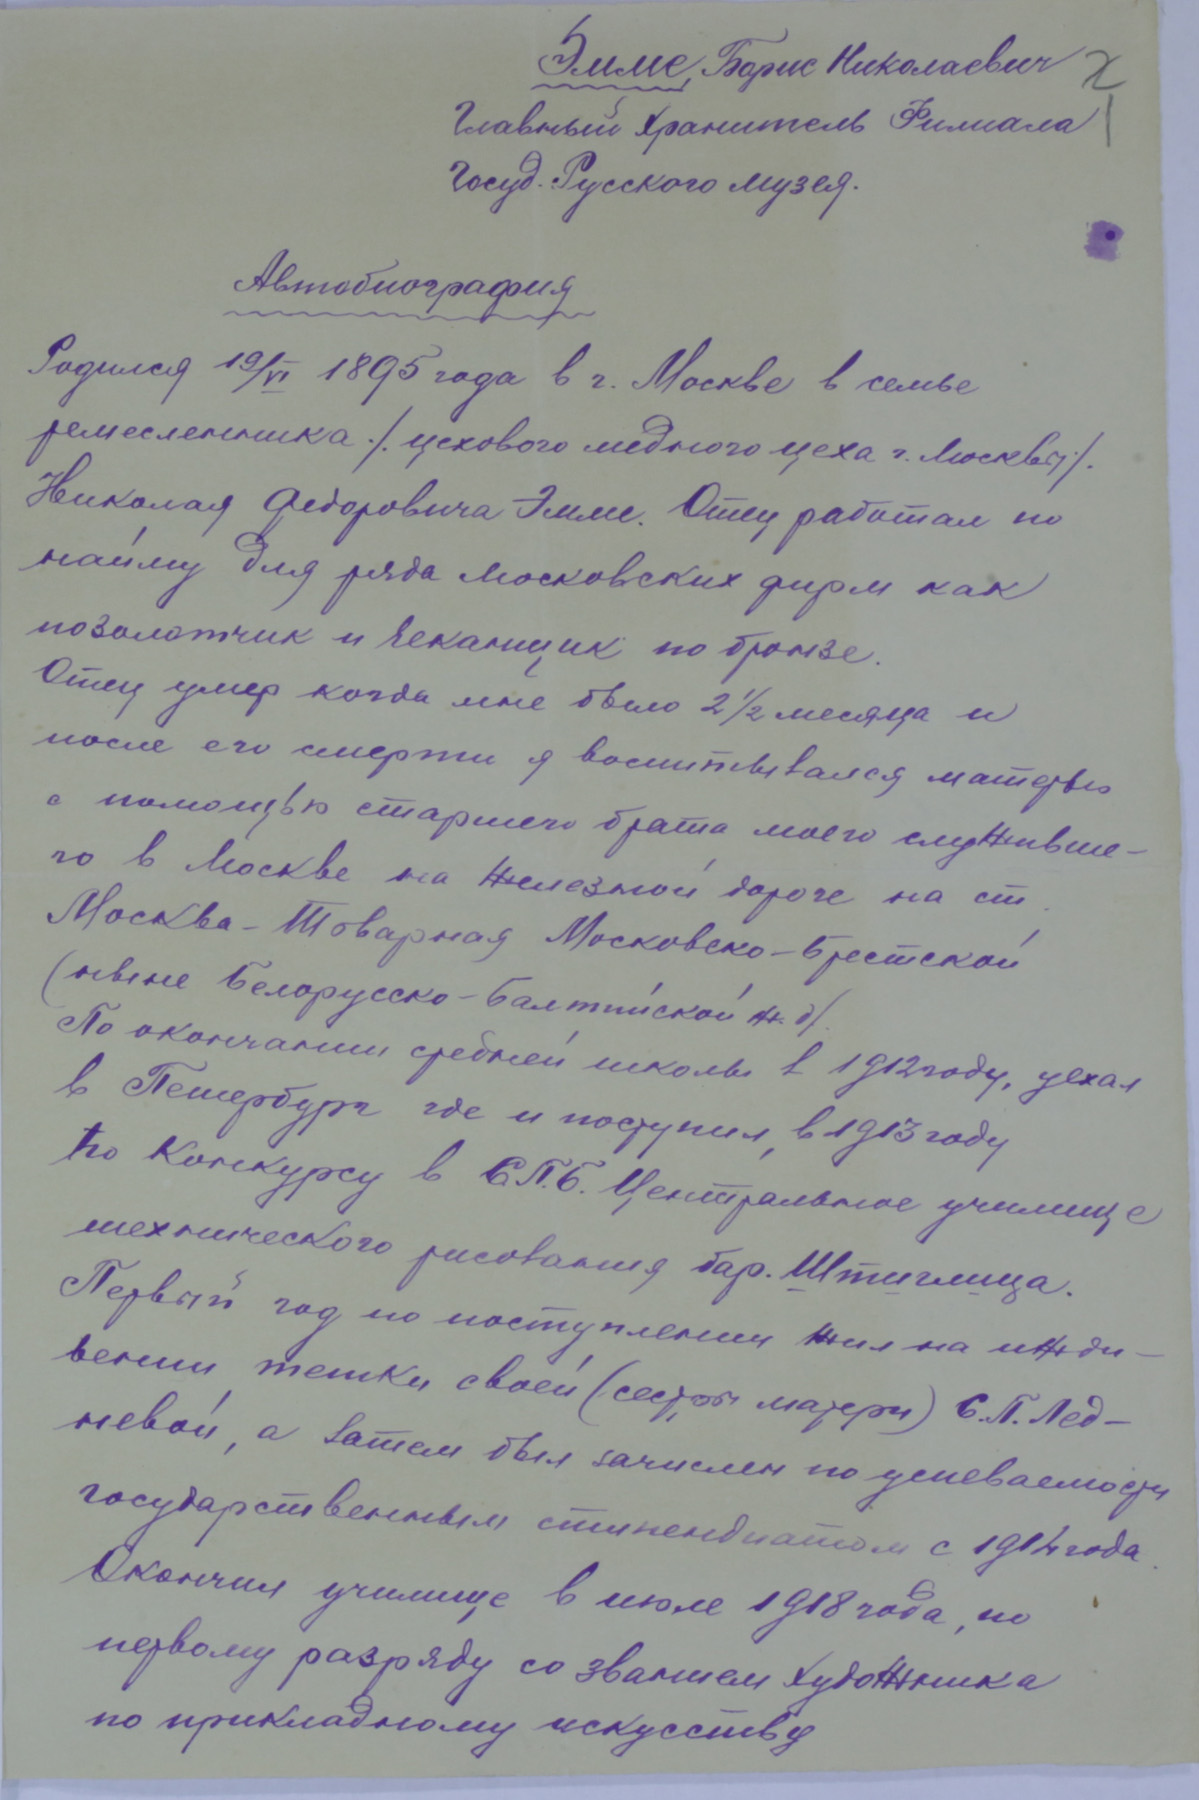 Эмме, Борис Николаевич
Главный Хранитель Филиала
Госуд. Русского музея.
Автобиография
Родился 19/VI 1895 года в г. Москве в семье
ремесленника /. цехового медного цеха г. Москвы/.
Николая Федоровича Эмме. Отец работал по
найму для ряда московских фирм как
позолотчик и чеканщик по бронзе.
Отец умер когда мне было 2 1/2 месяца и
после его смерти я воспитывался матерью
с помощью старшего брата моего служивше-
го в Москве на железной дороге на ст.
Москва-Товарная Московско-Брестской
(ныне Белорусско-Балтийской ж.д/.
По окончании средней школы в 1912 году, уехал
в Петербург где и поступил, в 1913 году
по конкурсу в С.П.Б. Центральное училище
технического рисования бар. Штиглица.
Первый год по поступлении жил на ижди-
вении тетки своей (сестры матери) С.П. Лед-
невой, а затем был зачислен по успеваемости
государственным стипендиатом с 1914 года.
Окончил училище в июле 1918 года, по
первому разряду со званием художника
по прикладному искусству